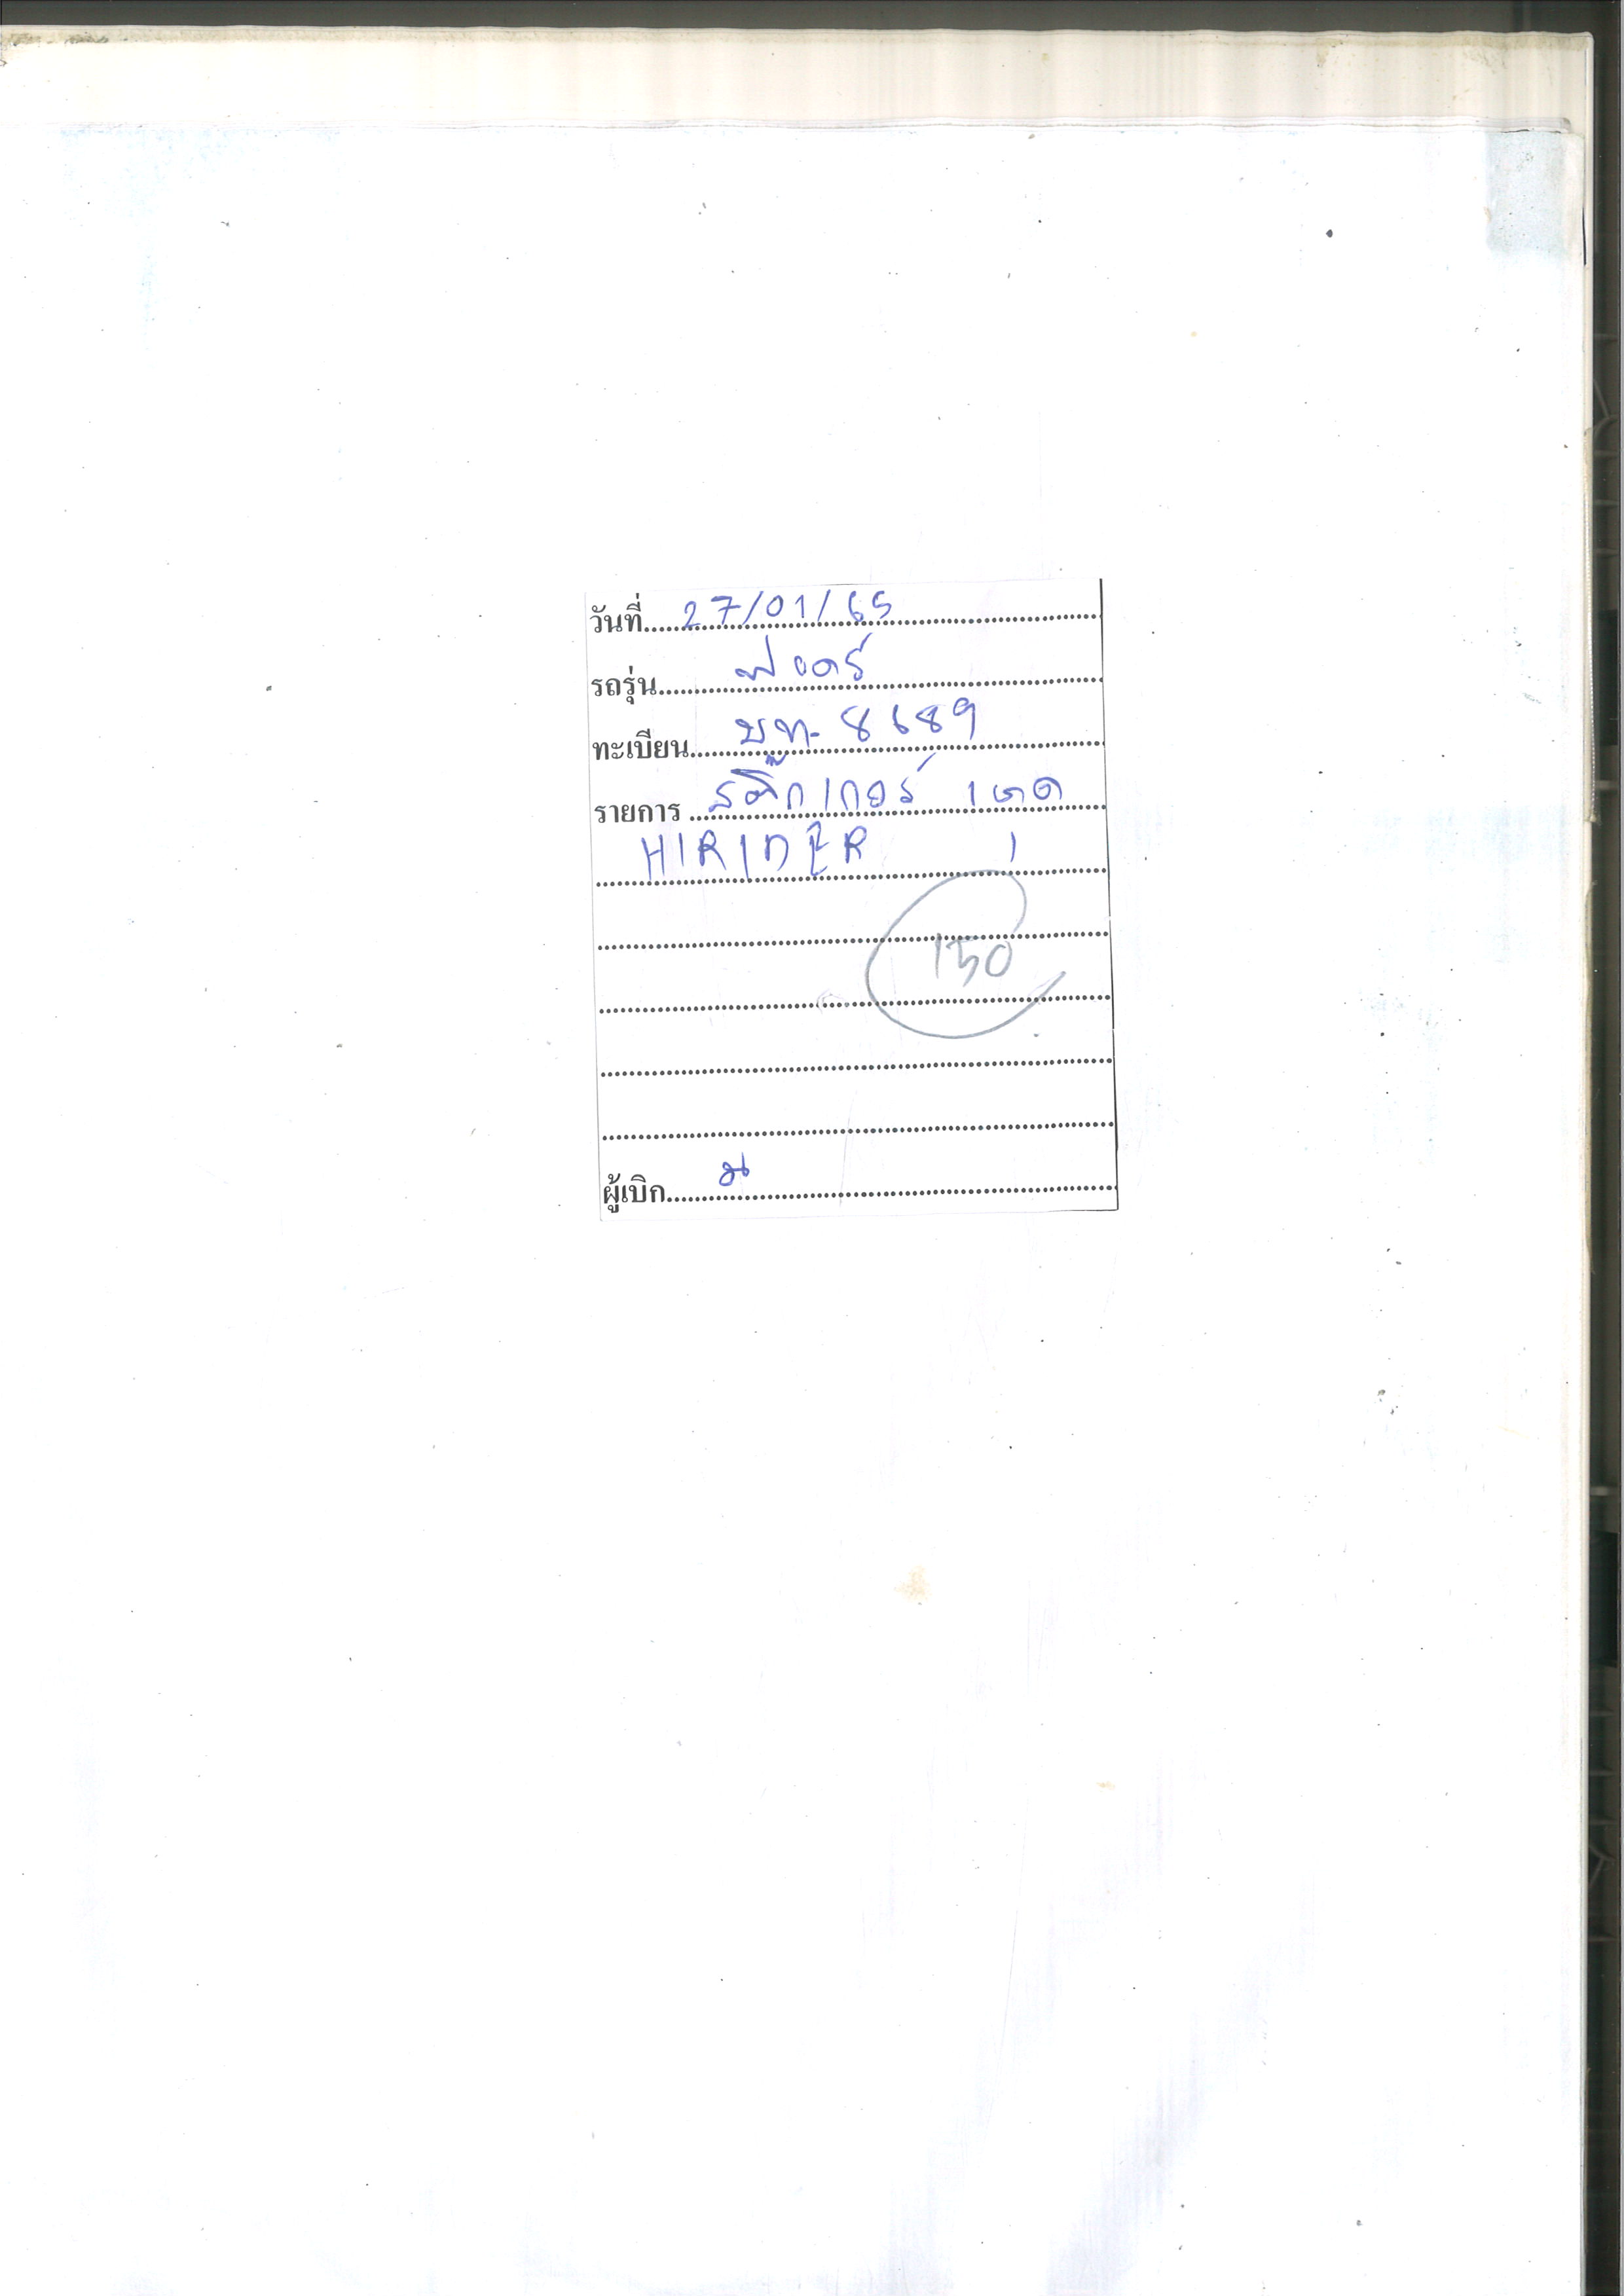 วันที่ 27/01/65
รถรุ่น ฟอดร์
ทะเบียน บท- 8689
รายการ สติ๊กเกอร์ 1
HIRINER 1
150
ผู้เบิก